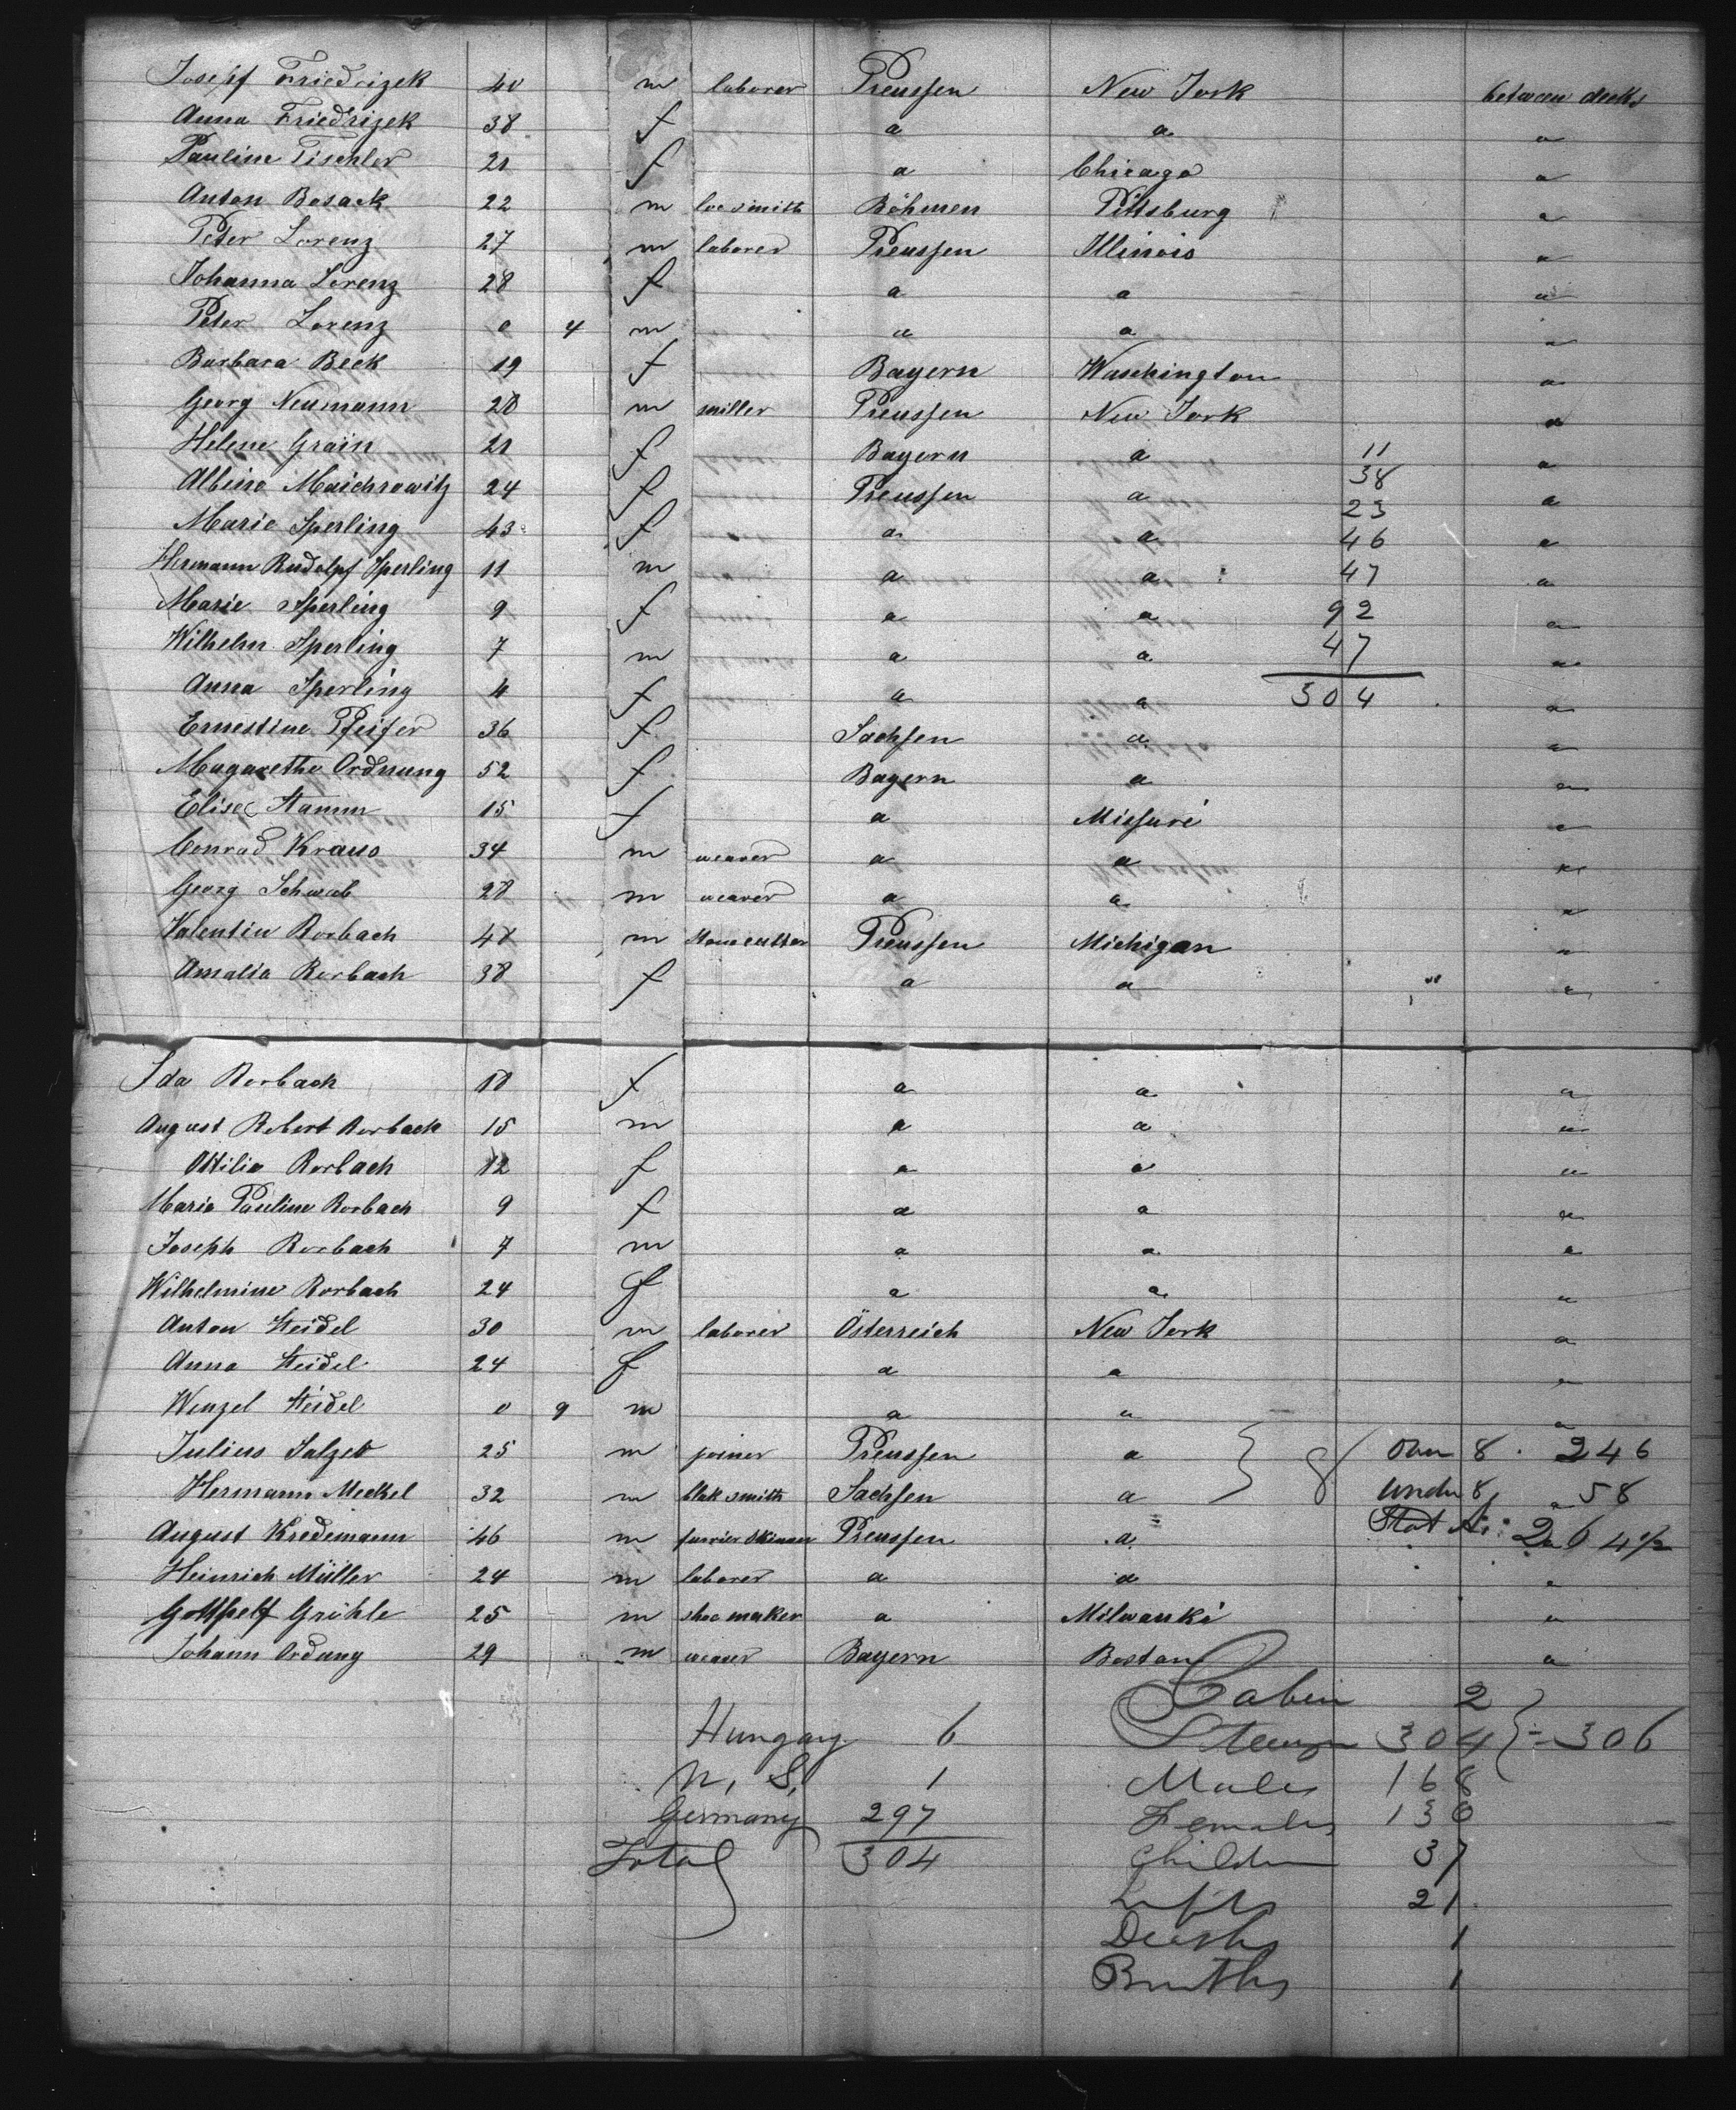 Josepf Friedrizek 40 m laborer Preussen New York between decks
Anna Friedrizek 38 f a a a
Pauline Tischler 21 f a Chicago a
Anton Bosack 22 m locsmith Böhmen Pittsburg a
Peter Lorenz 27 m laborer Preussen Illinois a
Johanna Lorenz 28 f a a a
Peter Lorenz 0 4 m a a a
Barbara Beck 19 f Bayern Waschington a
Georg Neumann 28 m miller Preussen New York a
Helene Grain 21 f Bayern a 11 a
Albine Maichrowitz 24 f Preussen a 38 a
23
Marie Sperling 43 f a a 46 a
Hermann Rudolpf Sperling 11 m a a 47 a
Marie Sperling 9 f a a 92 a
Wilhelm Sperling 7 m a a 47 a
Anna Sperling 4 f a a 304 a
Ernestine Pfeifer 36 f Sachsen a a
Magarethe Ordnung 52 f Bayern a a
Elise Stamm 15 f a Missuri a
Conrad Kraus 34 m weaver a a a
Georg Schwab 28 m weaver a a a
Valentin Rorbach 48 m stonecutter Preussen Michigan a
Amalia Rorbach 38 f a a a
Ida Rorbach 18 f a a a
August Robert Rorbach 15 m a a a
Ottilia Rorbach 12 f a a a
Maria Pauline Rorbach 9 f a a a
Joseph Rorbach 7 m a a a
Wilhelmine Rorbach 24 f a a a
Anton Steidel 30 m laborer Österreich New York a
Anna Steidel 24 f a a a
Wenzel Steidel 0 9 m a a a
Julius Salzer 25 m joiner Preussen a } 8 Over 8 246
Hermann Meckel 32 m blaksmith Sachsen a Under 8 a 58
August Kredemann 46 m furrier Preussen a 264½
Heinrich Müller 24 m laborer a a a
Gotthelf Grühle 25 m shoemaker a Milwauki a
Johann Ordung 29 m weaver Bayern Boston a
Cabin 2
Hungary 6 Steerage 304 } = 306
1 Males 168
Germany 297 Females 130
Total 304 Children 37
Infts 21
Deaths 1
Births 1